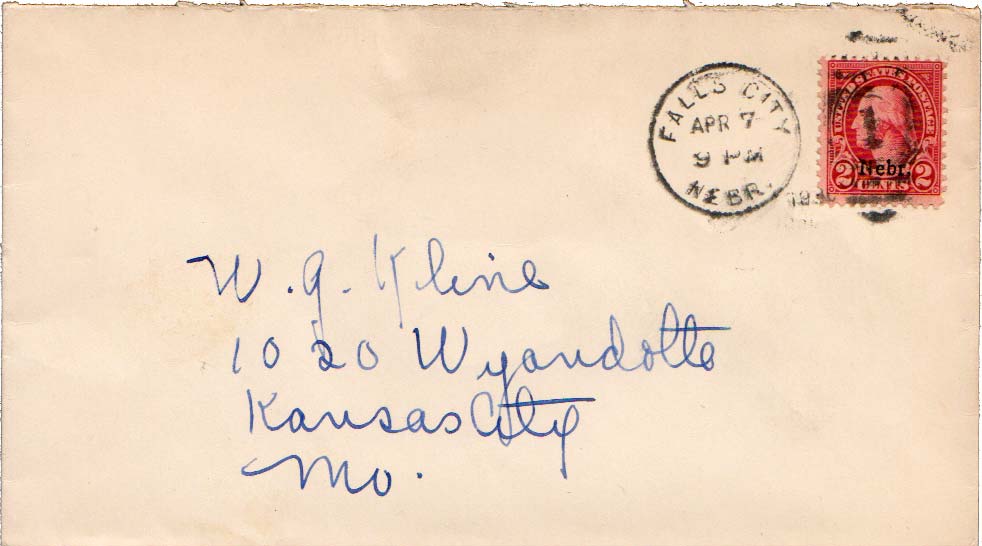 FALLS CITY
APR 7
9 PM
NEBR.
UNITED STATES POSTAGE
1
Nebr.
2 CENTS 2
W. G. Kline
1020 Wyandotte
Kansas City
Mo.